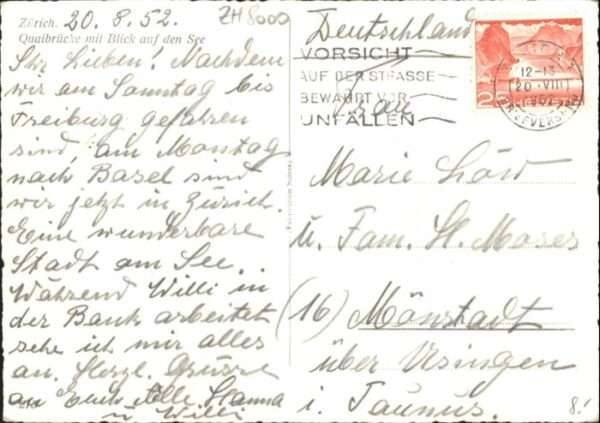 20.8.52.
ZH 8000
Zürich.
Quaibrücke mit Blick auf den See
Ihr Lieben! Nachdem
wir am Sonntag bis
Freiburg gefahren
sind, am Montag
nach Basel sind
wir jetzt in Zürich.
Eine wunderbare
Stadt am See.
Während Willi in
der Bank arbeitet
sehe ich mir alles
an. Herzl. Grüsse
an Euch Alle Hanna
u. Willi
Deutschland
VORSICHT
AUF DER STRASSE
BEWAHRT VOR
UNFÄLLEN
12-13
20.VIII
Frau
Marie Löw
u. Fam. H. Moses
(16) Mönstadt
über Usingen
i. Taunus.
8.-